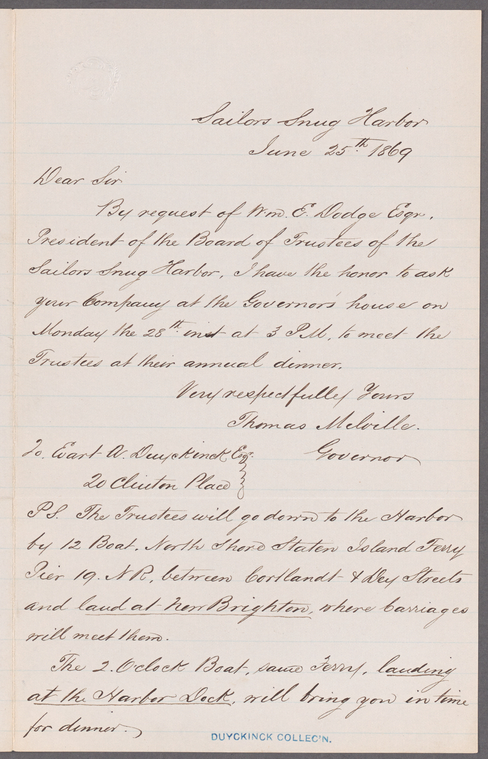 Sailors Snug Harbor
June 25th 1869
Dear Sir
By request of Wm. E. Dodge Esqr.
President of the Board of Trustees of the
Sailors Snug Harbor, I have the honor to ask
your Company at the Governor's house on
Monday the 28th inst at 3 P.M. to meet the
Trustees at their annual dinner.
Very respectfully Yours
Thomas Melville.
Governor
To. Evart A. Duyckinck Esq.
20 Clinton Place
P.S. The Trustees will go down to the Harbor
by 12 Boat. North Shore Staten Island Ferry
Pier 19. N.R. between Cortlandt & Dey Streets
and land at New Brighton, where Carriages
will meet them.
The 2. O'clock Boat, same Ferry, landing
at the Harbor Dock, will bring you in time
for dinner.
DUYCKINCK COLLEC'N.